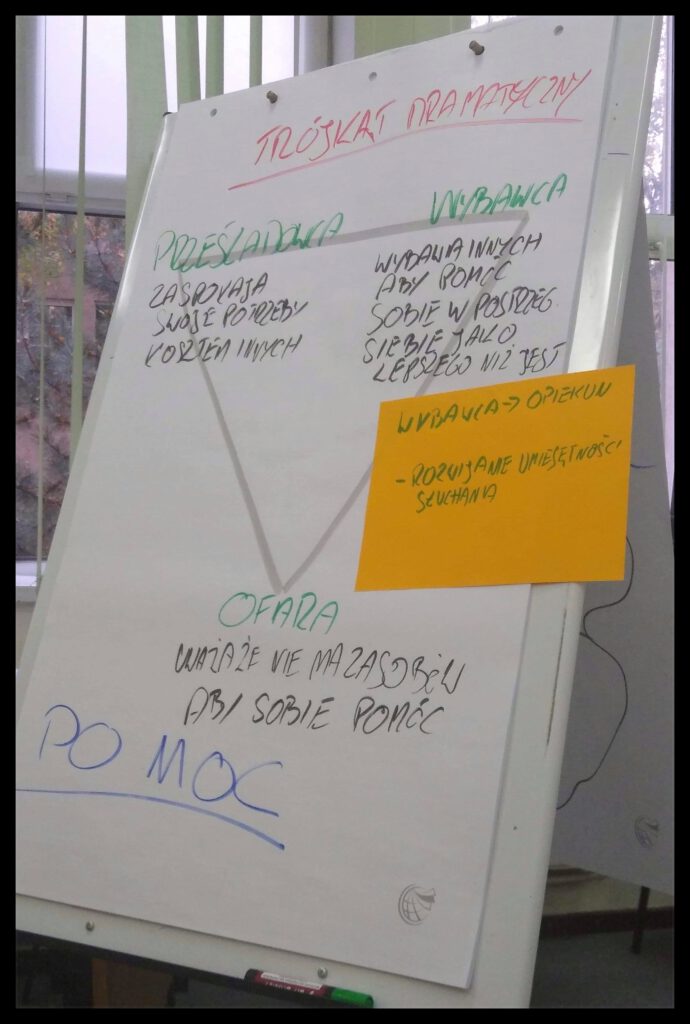 TRÓJKĄT DRAMATYCZNY
PRZEŚLADOWCA
ZASPOKAJA
SWOJE POTRZEBY
KOSZTEM INNYCH
WYBAWCA
WYBAWIA INNYCH
ABY POMÓC
SOBIE W POSTRZEG.
SIEBIE JAKO
LEPSZEGO NIŻ JEST
WYBAWCA → OPIEKUN
- ROZWIJANIE UMIEJĘTNOŚCI
SŁUCHANIA
OFIARA
UWAŻA ŻE NIE MA ZASOBÓW
ABY SOBIE POMÓC
PO MOC